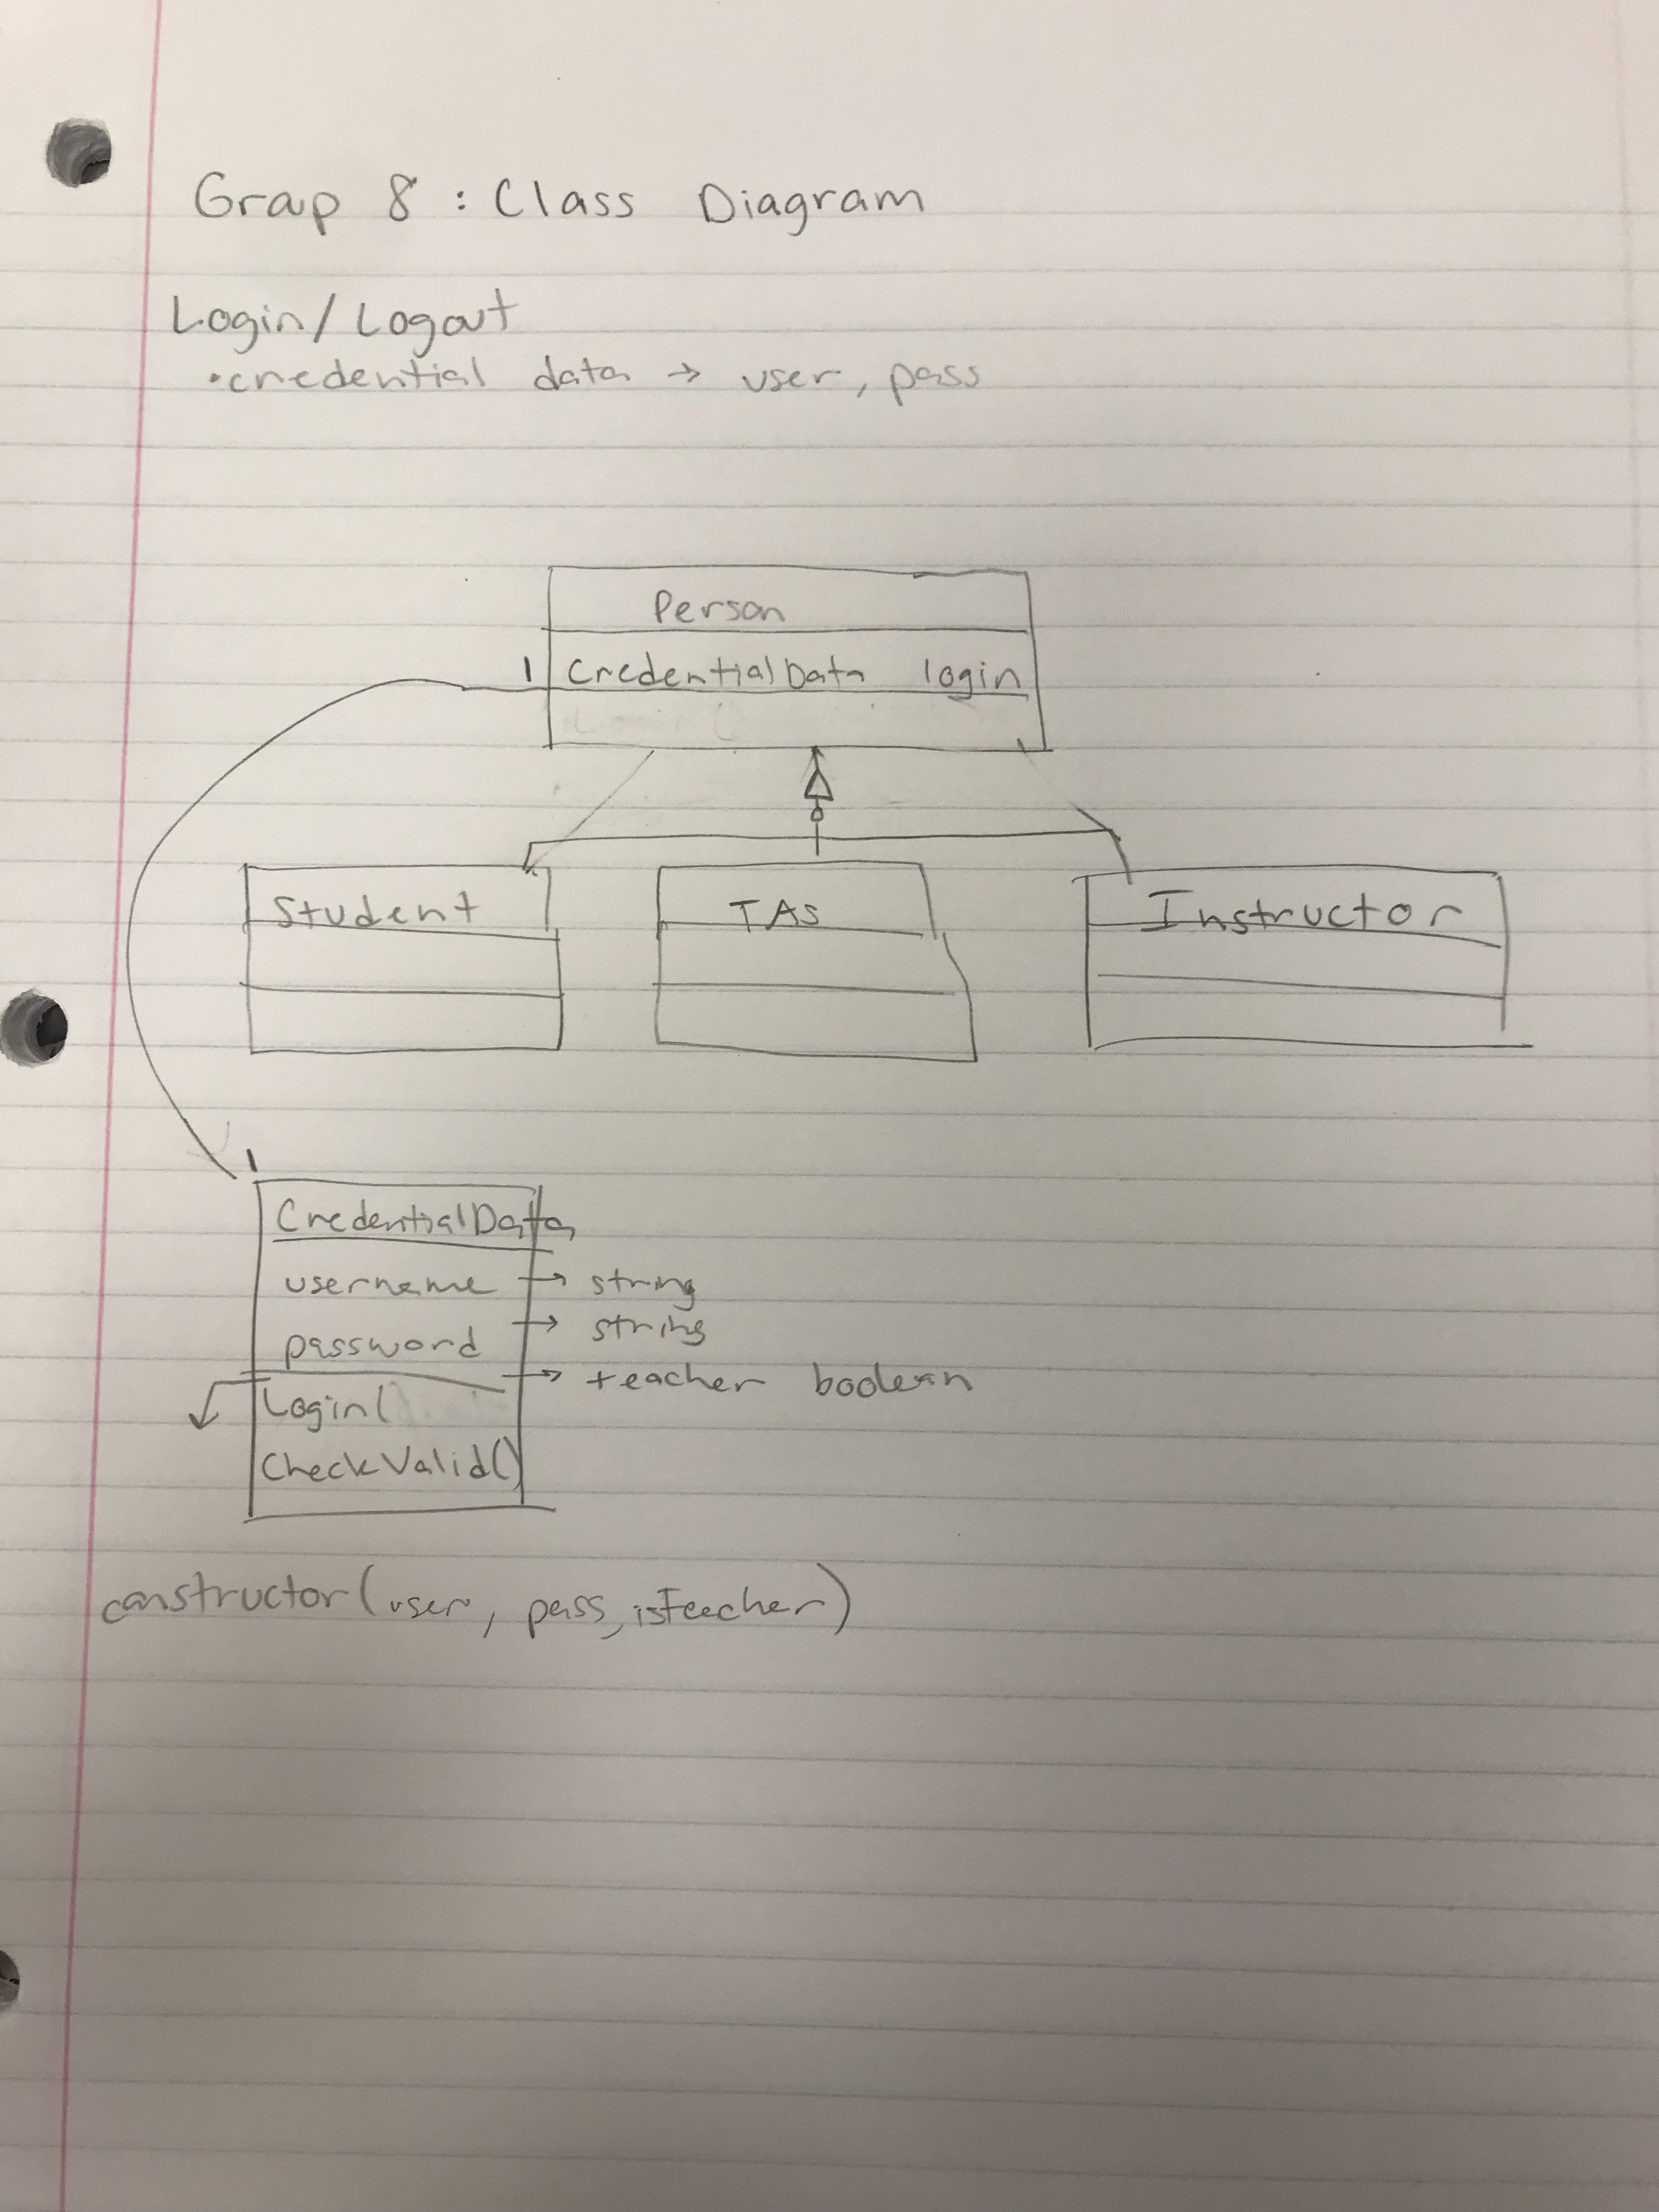 Group 8 : Class Diagram
Login/Logout
•credential data → user, pass
Person
1 CredentialData login
Student TAs Instructor
1
CredentialData
username → string
password → string
→ teacher boolean
Login(
CheckValid()
constructor(user, pass, isTeacher)